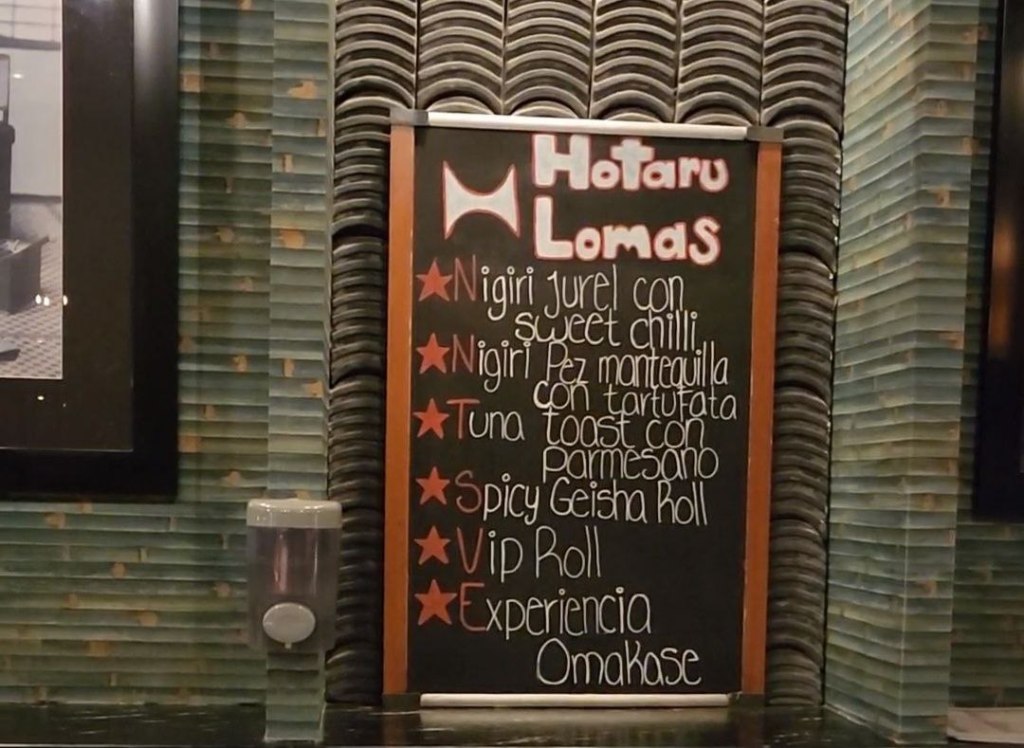 Hotaru
Lomas
Nigiri Jurel con
sweet chilli
Nigiri Pez mantequilla
con tartufata
Tuna toast con
parmesano
Spicy Geisha Roll
Vip Roll
Experiencia
Omakase